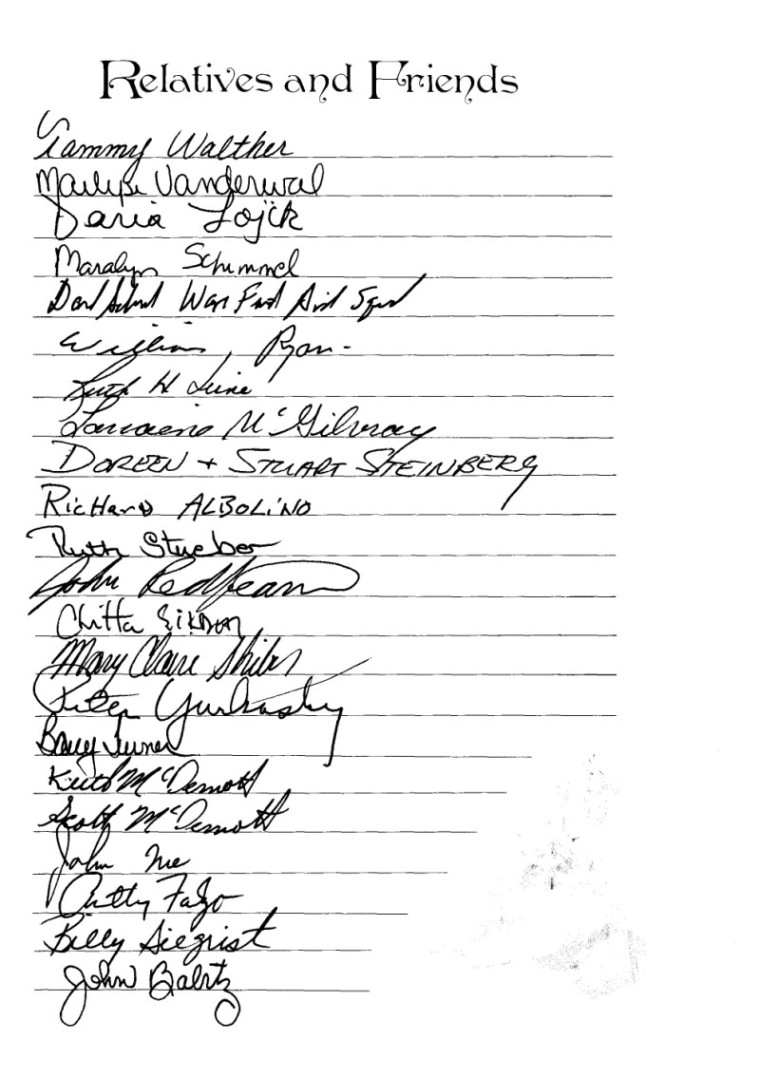 Relatives and Friends
Tammy Walther
Marilyn Vanderwal
Daria Lojik
Maralyn Schimmel
First Aid Squad
William Ryan
Ruth H
Lorraine McGilvray
DOREEN + STUART STEINBERG
Richard ALBOLINO
Ruth Stueber
John Redfearn
Chitta
Mary Claire
Peter
Barry Turner
Keith McDermott
Scott McDermott
John
Fazio
Billy Siegrist
John